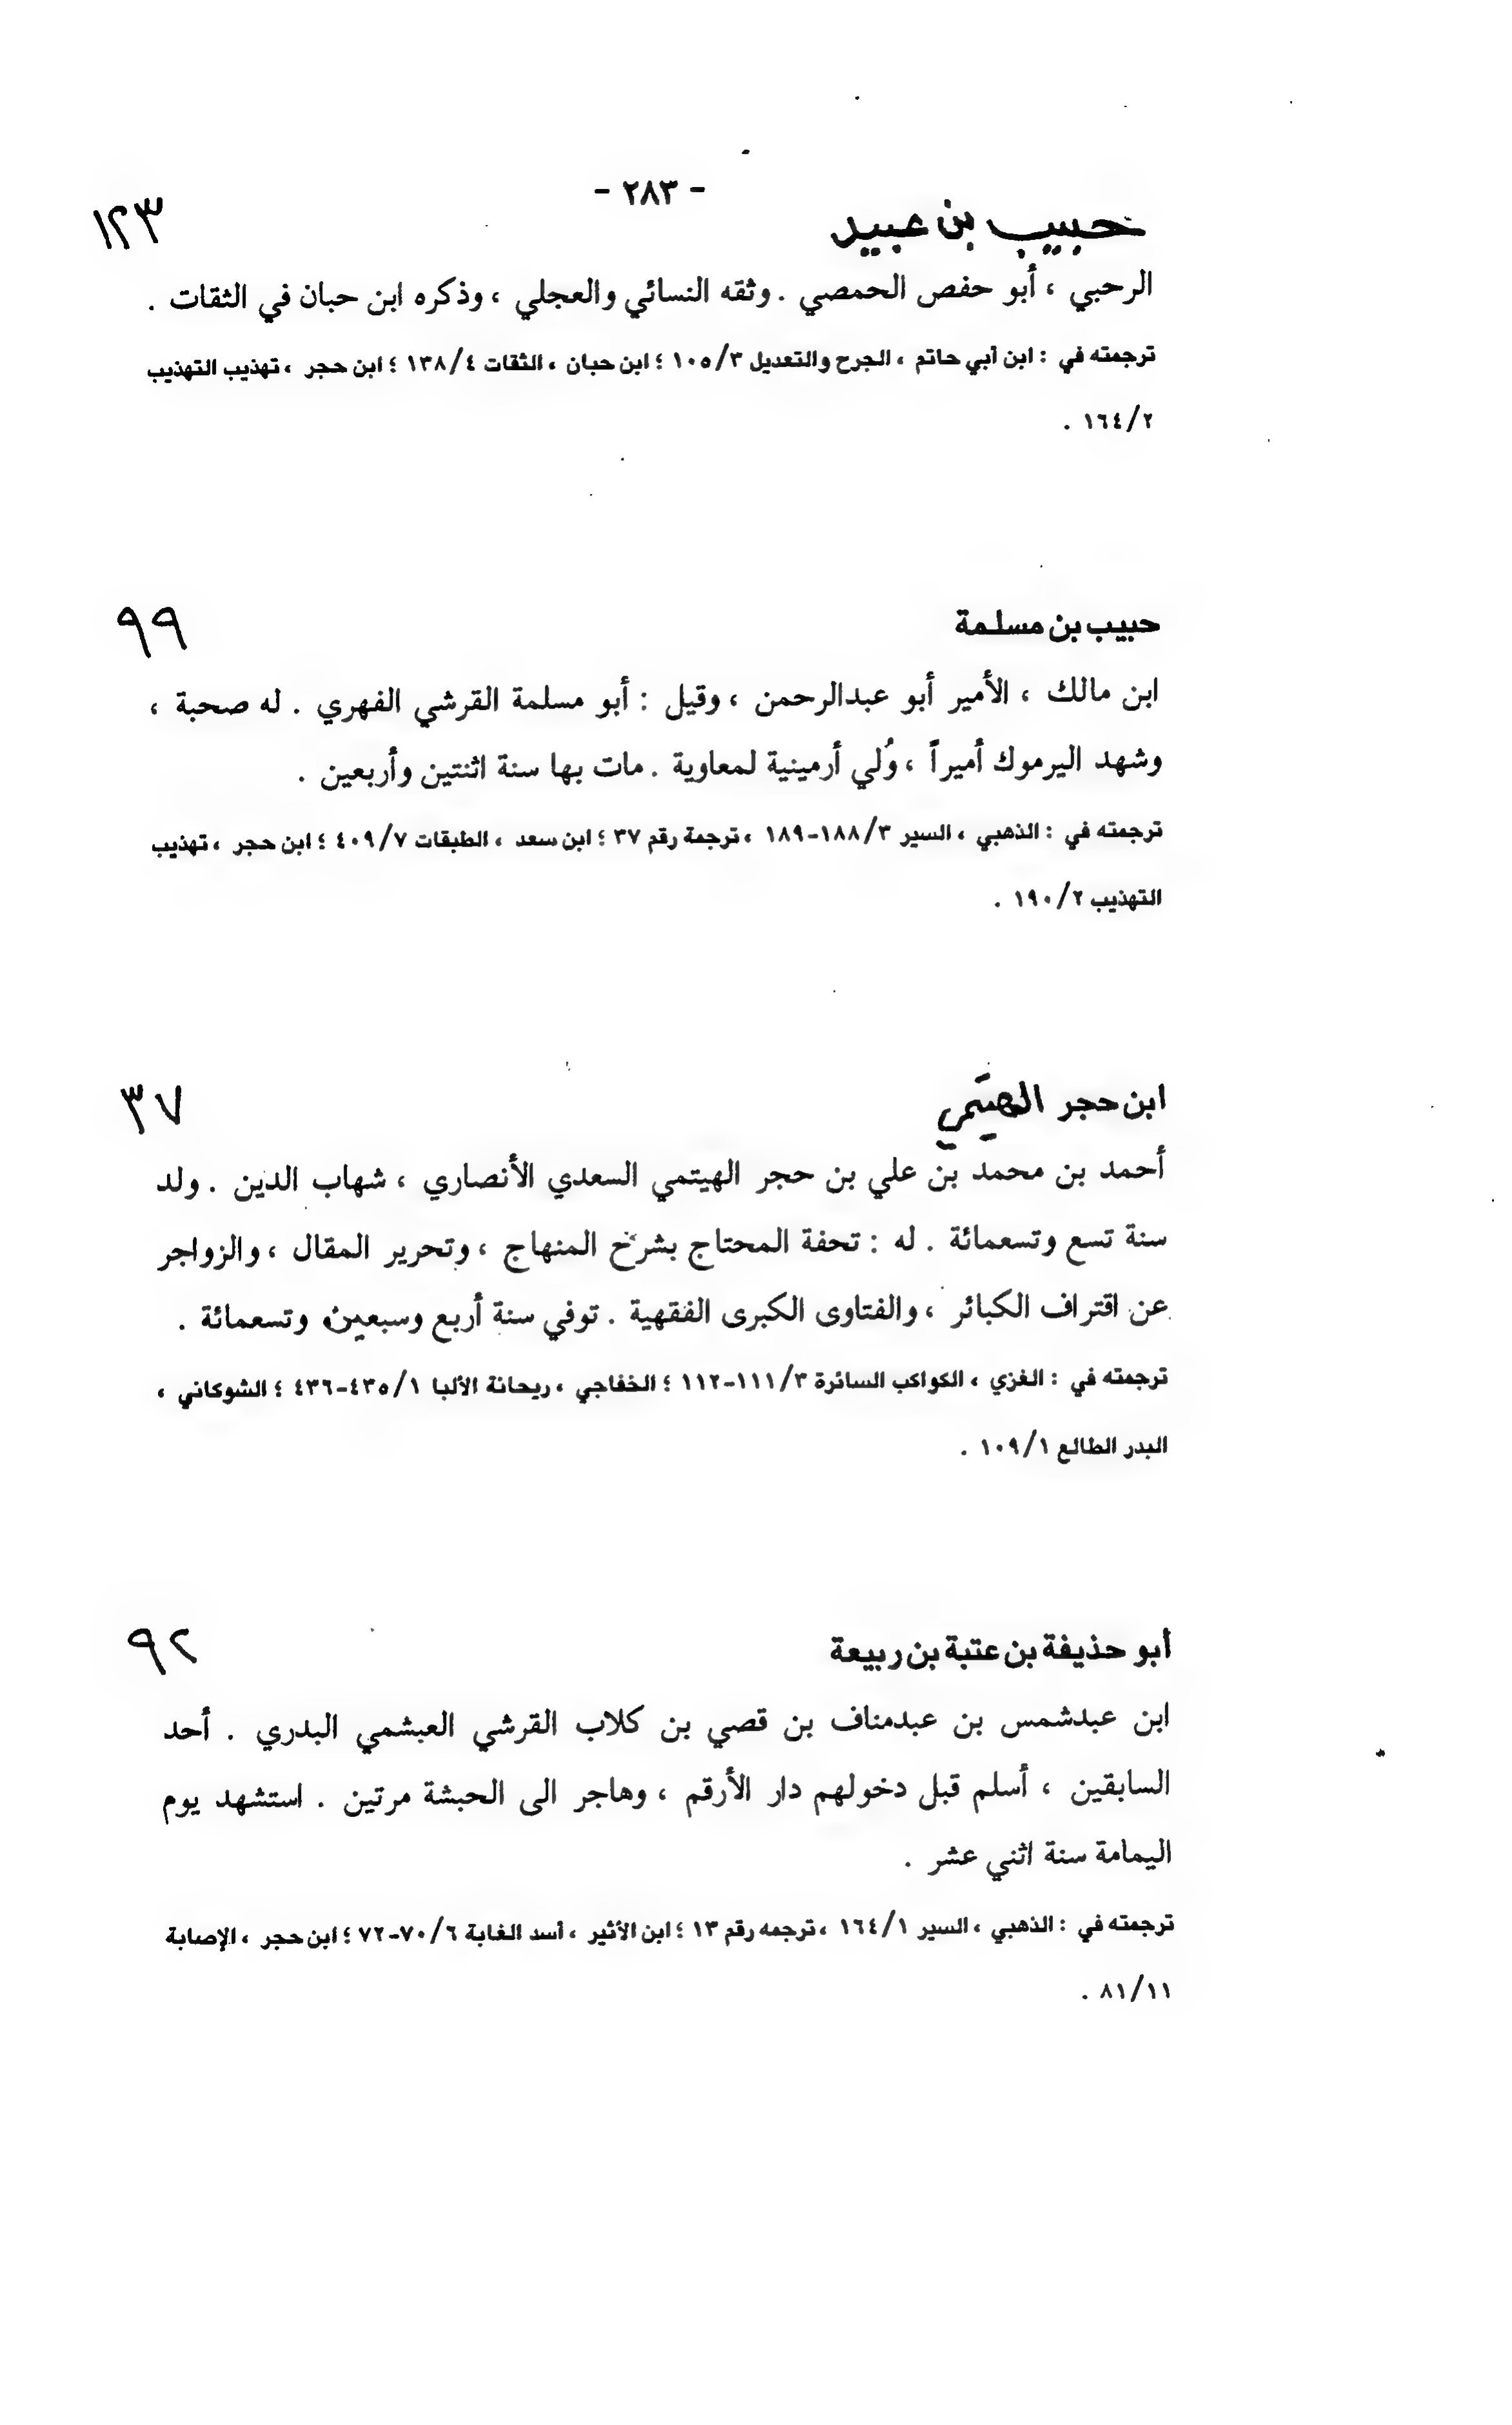 - ٢٨٣ -
حبيب بن عبيد ١٢٣
الرحبي ، أبو حفص الحمصي . وثقه النسائي والعجلي ، وذكره ابن حبان في الثقات .
ترجمته في : ابن أبي حاتم ، الجرح والتعديل ١٠٥/٣ ؛ ابن حبان ، الثقات ١٣٨/٤ ؛ ابن حجر ، تهذيب التهذيب
١٦٤/٢ .
حبيب بن مسلمة ٩٩
ابن مالك ، الأمير أبو عبدالرحمن ، وقيل : أبو مسلمة القرشي الفهري . له صحبة ،
وشهد اليرموك أميراً ، وُلي أرمينية لمعاوية . مات بها سنة اثنتين وأربعين .
ترجمته في : الذهبي ، السير ١٨٨/٣-١٨٩ ، ترجمة رقم ٣٧ ؛ ابن سعد ، الطبقات ٤٠٩/٧ ؛ ابن حجر ، تهذيب
التهذيب ١٩٠/٢ .
ابن حجر الهيتَمي ٣٧
أحمد بن محمد بن علي بن حجر الهيتمي السعدي الأنصاري ، شهاب الدين . ولد
سنة تسع وتسعمائة . له : تحفة المحتاج بشرح المنهاج ، وتحرير المقال ، والزواجر
عن اقتراف الكبائر ، والفتاوى الكبرى الفقهية . توفي سنة أربع وسبعين وتسعمائة .
ترجمته في : الغزي ، الكواكب السائرة ١١١/٣-١١٢ ؛ الخفاجي ، ريحانة الألبا ٤٣٥/١-٤٣٦ ؛ الشوكاني ،
البدر الطالع ١٠٩/١ .
أبو حذيفة بن عتبة بن ربيعة ٩٢
ابن عبدشمس بن عبدمناف بن قصي بن كلاب القرشي العبشمي البدري . أحد
السابقين ، أسلم قبل دخولهم دار الأرقم ، وهاجر الى الحبشة مرتين . استشهد يوم
اليمامة سنة اثني عشر .
ترجمته في : الذهبي ، السير ١٦٤/١ ، ترجمه رقم ١٣ ؛ ابن الأثير ، أسد الغابة ٧٠/٦-٧٢ ؛ ابن حجر ، الإصابة
٨١/١١ .